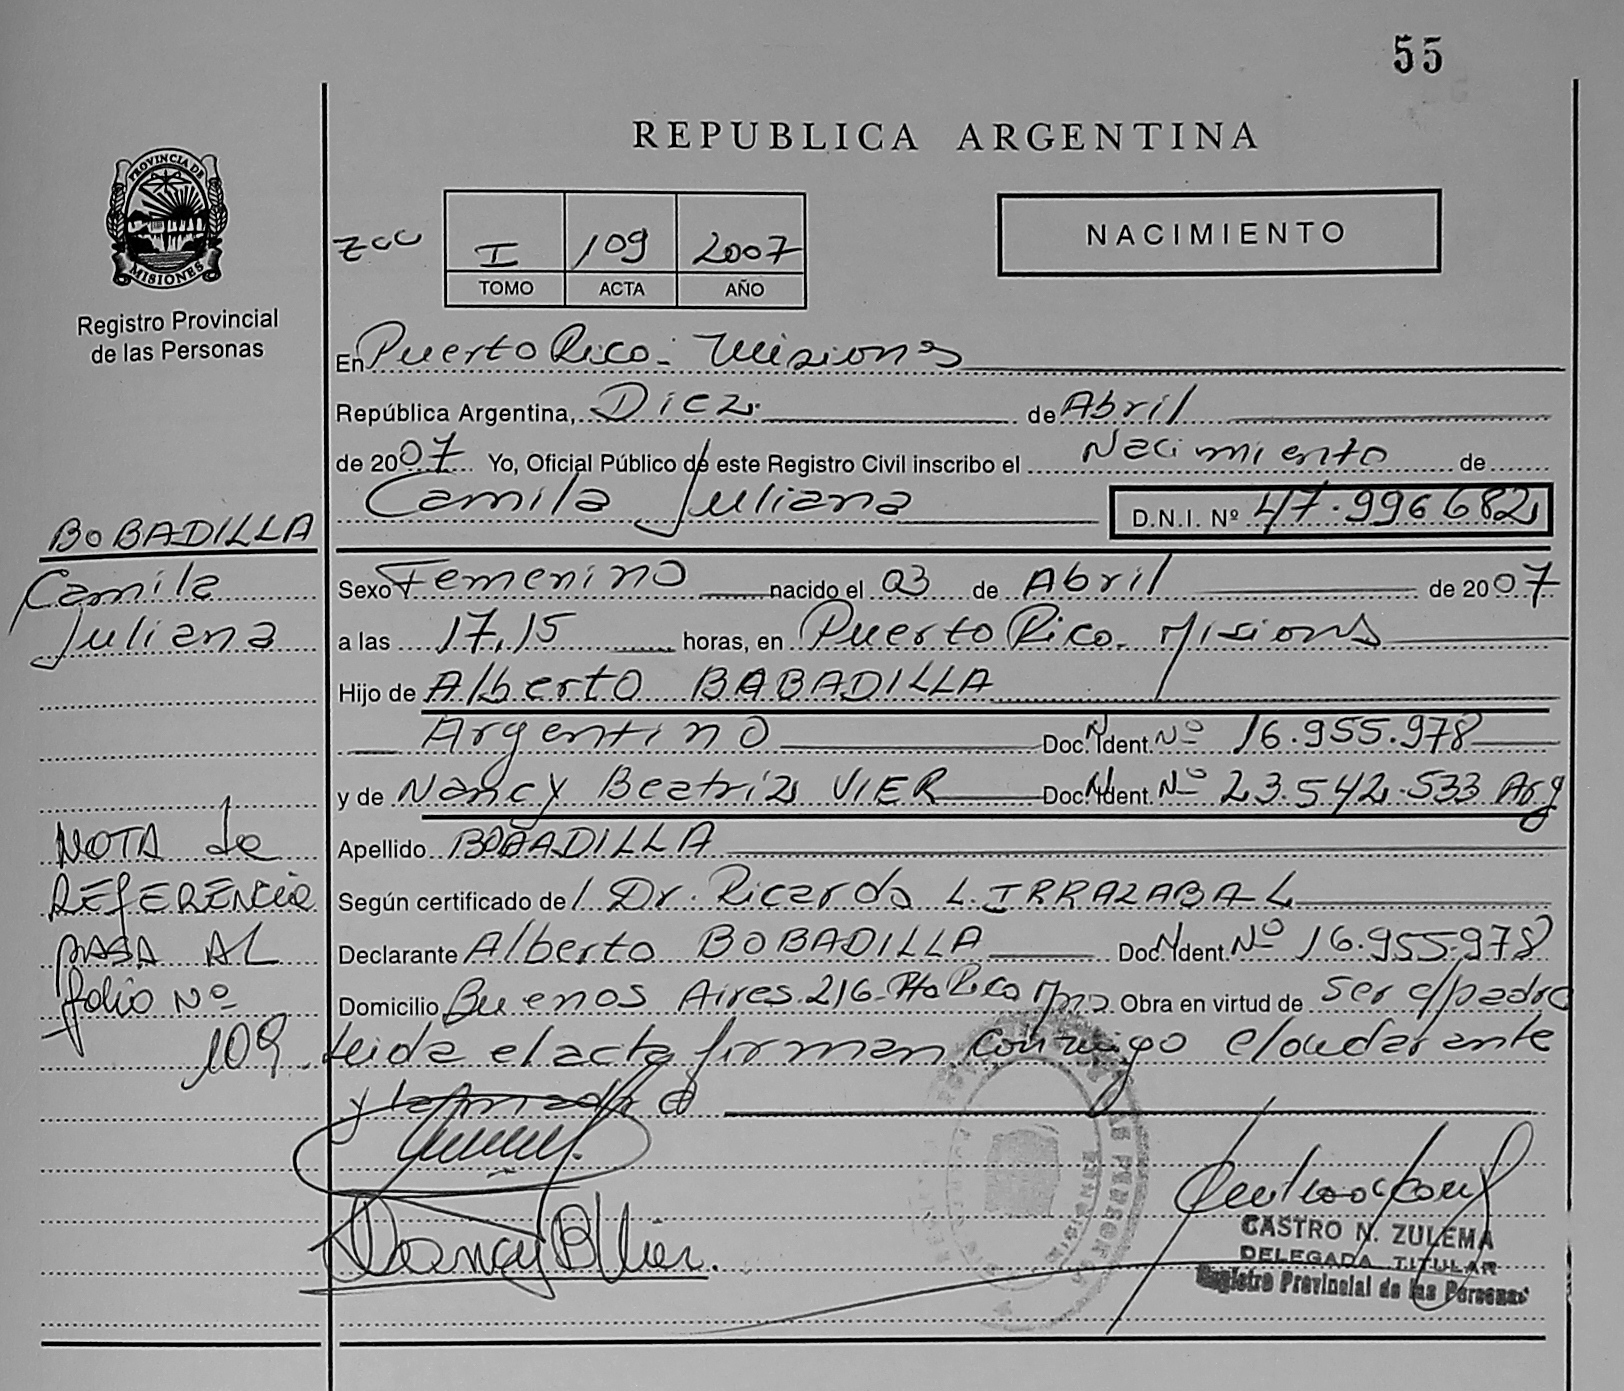 55
REPUBLICA ARGENTINA
PROVINCIA DE
MISIONES
Registro Provincial
de las Personas
I 109 2007
TOMO ACTA AÑO
NACIMIENTO
En Puerto Rico - Misiones
República Argentina, Diez de Abril
de 2007 Yo, Oficial Público de este Registro Civil inscribo el Nacimiento de
Camila Juliana D.N.I. Nº 47.996.682
BOBADILLA
Camila
Juliana
Sexo Femenino nacido el 03 de Abril de 2007
a las 17,15 horas, en Puerto Rico - Misiones
Hijo de Alberto BABADILLA
Argentino Doc. Ident. Nº 16.955.978
y de Nancy Beatriz VIER Doc. Ident. Nº 23.542.533 Arg
Apellido BOBADILLA
Según certificado de / Dr. Ricardo L. IRRAZABAL
Declarante Alberto BOBADILLA Doc. Ident. Nº 16.955.978
Domicilio Buenos Aires 216 - Pto Rico Mnes Obra en virtud de ser el padre
NOTA de
REFERENCIA
PASA AL
folio Nº
109
Leida el acta firman conmigo el
y la madre
Nancy B Vier.
CASTRO N. ZULEMA
DELEGADA TITULAR
Registro Provincial de las Personas